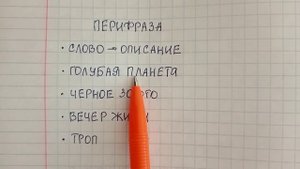 ПЕРИФРАЗА
• СЛОВО → ОПИСАНИЕ
• ГОЛУБАЯ ПЛАНЕТА
• ЧЕРНОЕ
• ВЕЧЕР
• ТРОП